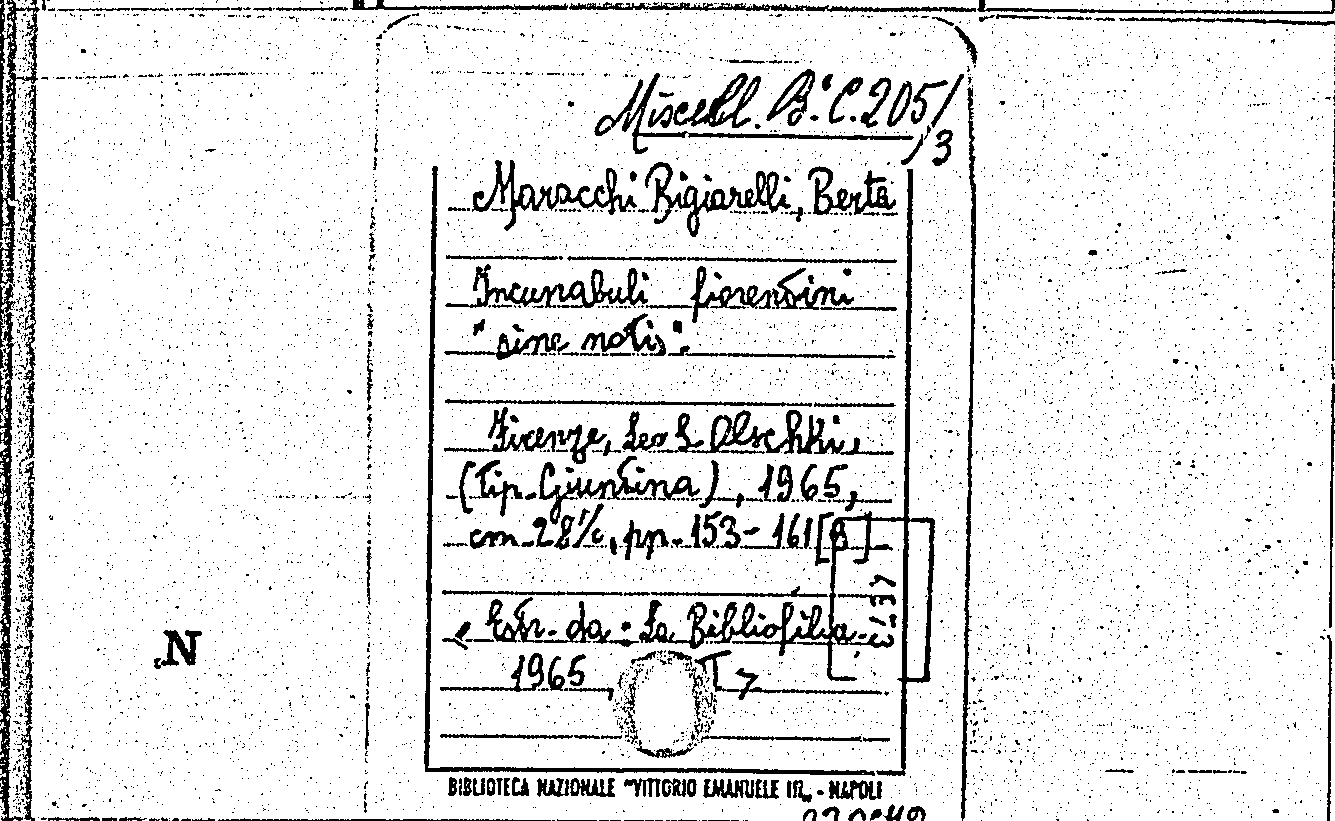 Miscell. B. C. 205/3
Maracchi Bigiarelli, Berta
Incunabuli fiorentini
"sine notis".
Firenze, Leo S. Olschki,
(Tip. Giuntina), 1965,
cm. 28½, pp. 153-161 [8]
< Estr. da: La Bibliofilia.
1965, >
N
BIBLIOTECA NAZIONALE "VITTORIO EMANUELE III" - NAPOLI